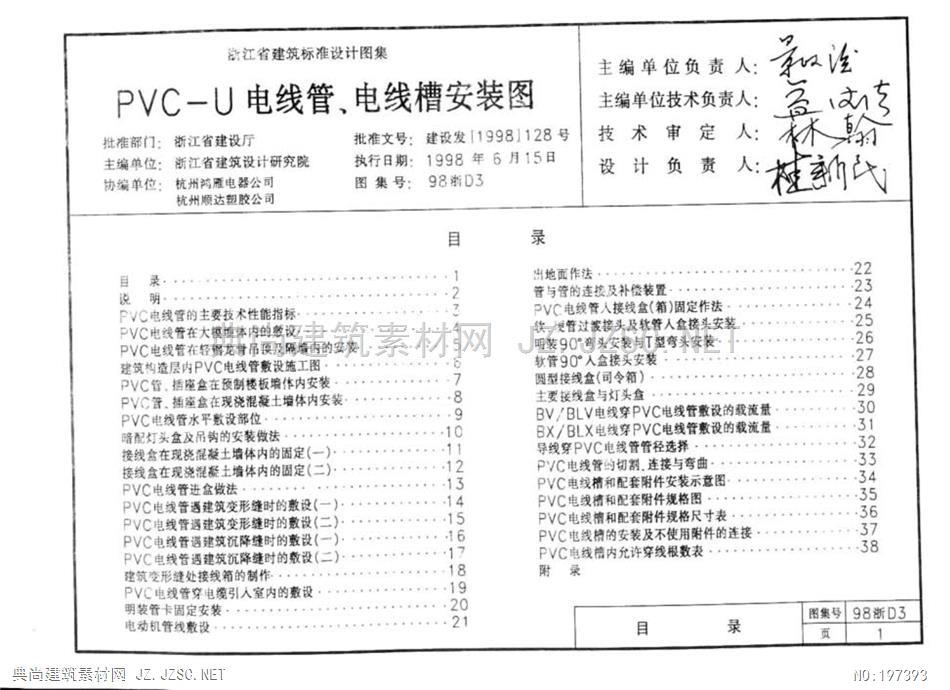 浙江省建筑标准设计图集
PVC-U电线管、电线槽安装图
批准部门: 浙江省建设厅
主编单位: 浙江省建筑设计研究院
协编单位: 杭州鸿雁电器公司
杭州顺达塑胶公司
批准文号: 建设发[1998]128号
执行日期: 1998年6月15日
图集号: 98浙D3
主编单位负责人:
主编单位技术负责人:
技术审定人:
设计负责人: 桂新民
目 录
目 录 1
说 明 2
PVC电线管的主要技术性能指标 3
PVC电线管在大模墙体内的敷设 4
PVC电线管在轻钢龙骨吊顶及隔墙内的安装 5
建筑构造层内PVC电线管敷设施工图 6
PVC管、插座盒在预制楼板墙体内安装 7
PVC管、插座盒在现浇混凝土墙体内安装 8
PVC电线管水平敷设部位 9
暗配灯头盒及吊钩的安装做法 10
接线盒在现浇混凝土墙体内的固定(一) 11
接线盒在现浇混凝土墙体内的固定(二) 12
PVC电线管进盒做法 13
PVC电线管遇建筑变形缝时的敷设(一) 14
PVC电线管遇建筑变形缝时的敷设(二) 15
PVC电线管遇建筑沉降缝时的敷设(一) 16
PVC电线管遇建筑沉降缝时的敷设(二) 17
建筑变形缝处接线箱的制作 18
PVC电线管穿电缆引入室内的敷设 19
明装管卡固定安装 20
电动机管线敷设 21
出地面作法 22
管与管的连接及补偿装置 23
PVC电线管入接线盒(箱)固定作法 24
软、硬管过渡接头及软管入盒接头安装 25
明装90°弯头安装与T型弯头安装 26
软管90°入盒接头安装 27
圆型接线盒(司令箱) 28
主要接线盒与灯头盒 29
BV/BLV电线穿PVC电线管敷设的载流量 30
BX/BLX电线穿PVC电线管敷设的载流量 31
导线穿PVC电线管管径选择 32
PVC电线管的切割、连接与弯曲 33
PVC电线槽和配套附件安装示意图 34
PVC电线槽和配套附件规格图 35
PVC电线槽和配套附件规格尺寸表 36
PVC电线槽的安装及不使用附件的连接 37
PVC电线槽内允许穿线根数表 38
附 录
目 录
图集号 98浙D3
页 1
典尚建筑素材网 JZ.JZSC.NET
典尚建筑素材网 JZ.JZSC.NET
NO:197393